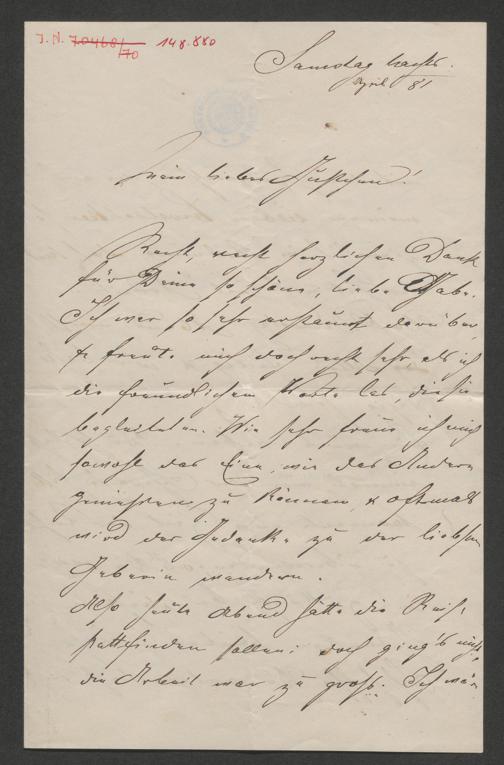 J. N. 70468/70 148.880
Samstag Nachts.
April 81
Mein liebes Gustchen!
Recht, recht herzlichen Dank
für Deine so schöne, liebe Gabe.
Ich war so sehr erstaunt darüber,
& freute mich doch recht sehr als ich
die freundlichen Worte las, die sie
begleiteten. Wie sehr freue ich mich
sowohl das Eine, wie das Andere
geniessen zu können, & oftmals
wird der Gedanke zu der lieben
Geberin wandern.
Also heute Abend hätte die Reise
stattfinden sollen; doch ging's nicht,
die Arbeit war zu gross. Ich wär